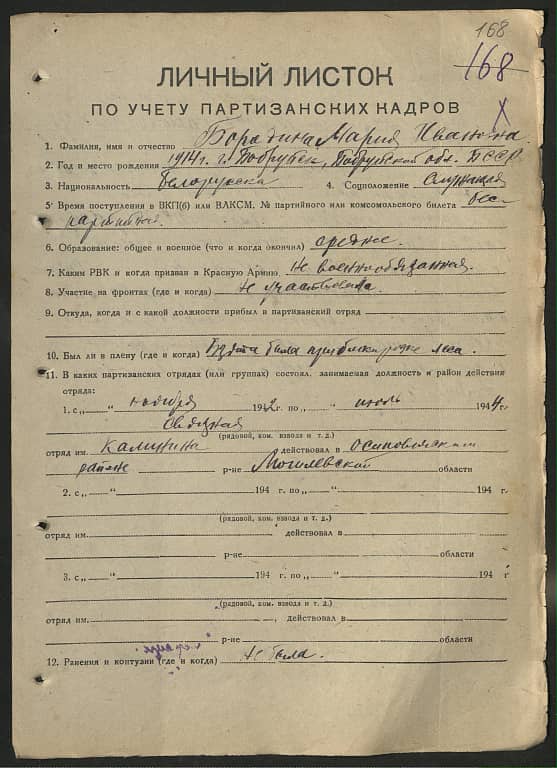 168
168
ЛИЧНЫЙ ЛИСТОК
ПО УЧЕТУ ПАРТИЗАНСКИХ КАДРОВ
1. Фамилия, имя и отчество Бородина Мария Ивановна
2. Год и место рождения 1914 г. г. Бобруйск, Бобруйской обл. БССР
3. Национальность Белорусска 4. Соцположение Служащая
5. Время поступления в ВКП(б) или ВЛКСМ, № партийного или комсомольского билета бес-
партийная.
6. Образование: общее и военное (что и когда окончил) среднее.
7. Каким РВК и когда призван в Красную Армию Не военнообязанная.
8. Участие на фронтах (где и когда) Не участвовала
9. Откуда, когда и с какой должности прибыл в партизанский отряд
10. Был ли в плену (где и когда) взята была при блокировке леса.
11. В каких партизанских отрядах (или группах) состоял, занимаемая должность и район действия
отряда:
1. с „ “ ноября 1942 г. по „ “ июль 1944 г.
Связная
(рядовой, ком. взвода и т. д.)
отряд им. Калинина действовал в Осиповичском
районе р-не Могилевской области
2. с „ “ 194 г. по „ “ 194 г.
(рядовой, ком. взвода и т. д.)
отряд им. действовал в
р-не области
3. с „ “ 194 г. по „ “ 194 г
(рядовой, ком. взвода и т. д.)
отряд им. , действовал в
р-не области
12. Ранения и контузии (где и когда) Не была.